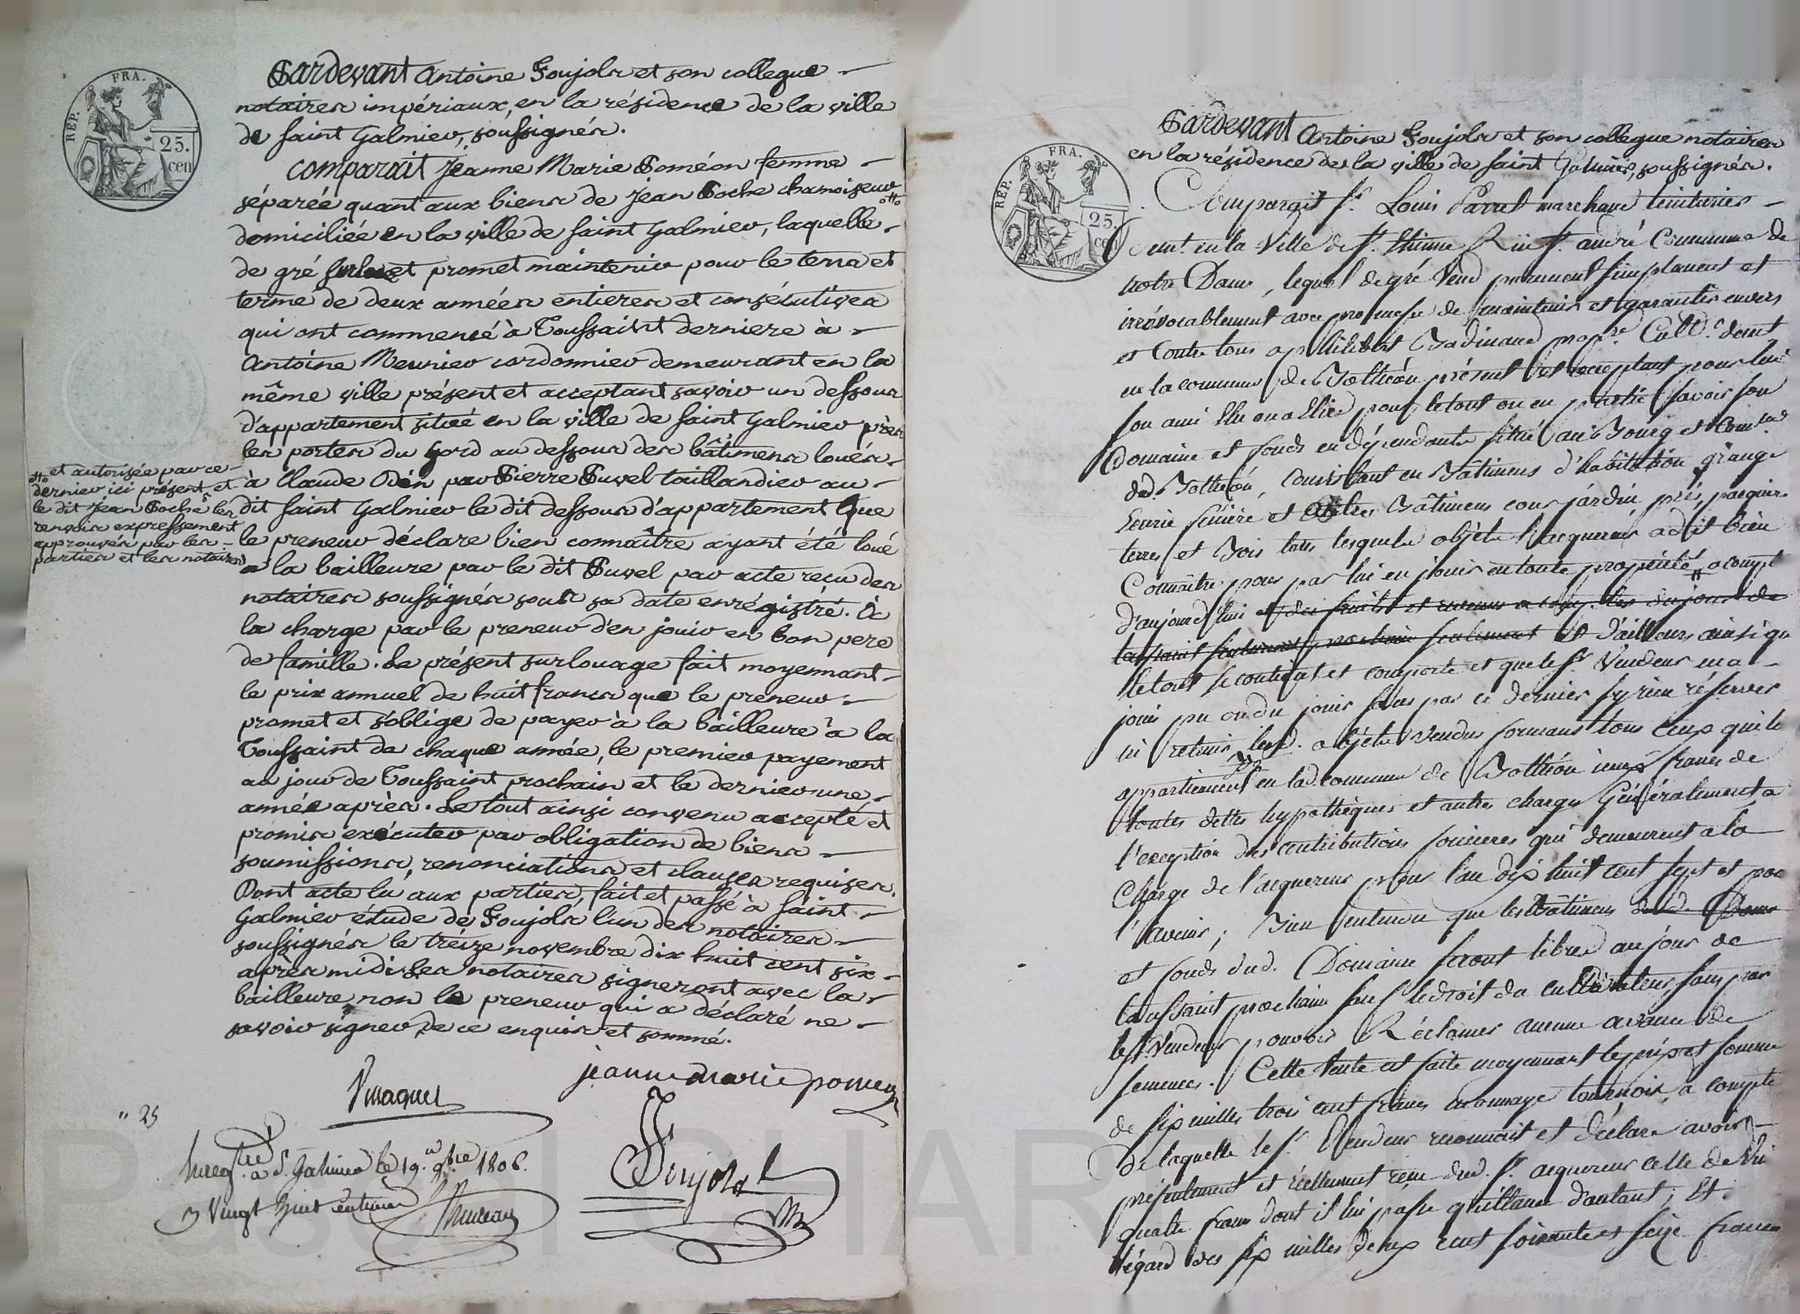 REP. FRA.
25.
cen
Pardevant Antoine Goujols et son collegue
notaires impériaux, en la résidence de la ville
de saint Galmier, soussignés.
comparait jeanne Marie Poméon femme
séparée quant aux biens de jean Poche chamoiseur
domiciliée en la ville de saint galmier, laquelle
de gré et promet maintenir pour le tems et
terme de deux années entieres et consécutives
qui ont commencé à Toussaint derniere à
Antoine Meunier cordonnier demeurant en la
même ville présent et acceptant savoir un dessous
d'appartement situé en la ville de saint Galmier près
les portes du au dessous des bâtimens loués
à Claude par Pierre Buvel taillandier au
dit saint Galmier le dit dessous d'appartement que
le preneur déclare bien connaître ayant été loué
a la bailleure par le dit Buvel par acte reçu des
notaires soussignés sous sa date enrégistré. à
la charge par le preneur d'en jouir en bon pere
de famille. Le présent surlouage fait moyennant
le prix annuel de huit francs que le preneur
promet et s'oblige de payer à la bailleure à la
Toussaint de chaque année, le premier payement
au jour de Toussaint prochain et le dernier une
année après. Le tout ainsi convenu accepté et
promis exécuter par obligation de biens
soumissions, renonciations et clauses requises.
Dont acte lu aux parties, fait et passé à saint
Galmier étude de Goujols l'un des notaires
soussignés le treize novembre dix huit cent six
après midi. Les notaires signeront avec la
bailleure non le preneur qui a déclaré ne
savoir signer de ce enquis et sommé.
et autorisée par ce
dernier ici présent et
le dit jean Poche les
renvois expressement
approuvés par les
parties et les notaires
jeanne marie pomeon
" 25
Goujols
Enreg.tré à S. Galmier le 19. 9.bre 1806.
Vingt huit centimes
REP. FRA.
25.
cen
Pardevant Antoine Goujols et son collegue notaires
en la résidence de la ville de saint Galmier, soussignés.
Comparait s.r Louis Parret marchand teinturier
en la ville de s.t Etienne Rue s.t andré Commune de
notre Dame, lequel de gré vend purement simplement et
irrévocablement avec promesse de maintenir et garantir envers
et Contre tous a philibert Badinand prop.re Cult.r demt
en la commune de Bolthéon présent et acceptant pour lui
son ami Elu ou a Elire pour le tout ou en partie savoir son
Domaine et fonds en dépendants situé au Bourg et
de Bolthéon, Consistant en Bâtimens d'habitation grange
Ecurie feniére et autres Bâtimens cour jardin prés paquiers
terres et Bois tous lesquels objets l'acquereur a dit bien
Connaître pour par lui en jouir en toute propriété a compter
d'aujourd'hui et des fruits et revenus a compter du jour de
toussaint prochain seulement et d'ailleurs ainsi que
le tout se contient et comporte et que le s.r Vendeur en a
joui pu ou du jouir sans par ce dernier s'y rien réserver
ni retenir lesd. objets vendus formant tous ceux qui lui
appartiennent en lad. commune de Bolthéon francs de
toutes dettes hypothèques et autres charges Généralement a
l'exception des contributions foncieres qui demeurent a la
Charge de l'acquereur pour l'an dix huit cent sept et pour
l'avenir; Bien entendu que les Bâtimens
et fonds dud. Domaine seront libres au jour de
toussaint prochain sauf le droit du cultivateur, sans par
le s.r Vendeur pouvoir Réclamer aucune avance de
semences. Cette Vente est faite moyennant le prix et somme
de six milles trois cent francs monnaye tournois, a compte
de laquelle le s.r Vendeur reconnait et déclare avoir
présentement et réellement reçu dud. s.r acquereur celle de Vingt
quatre francs dont il lui passe quittance d'autant; Et
l'égard des six milles deux cent soixante et seize francs